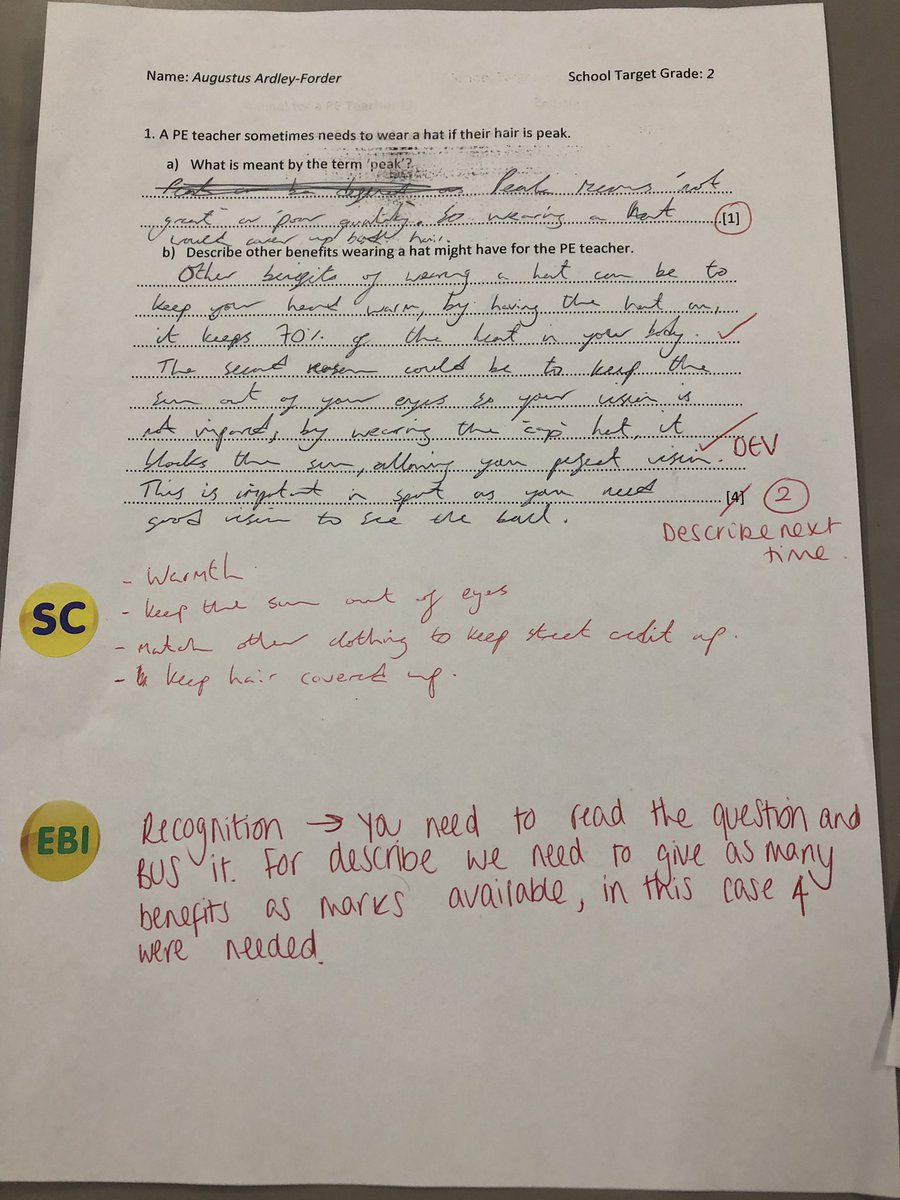 Name: Augustus Ardley-Forder School Target Grade: 2
1. A PE teacher sometimes needs to wear a hat if their hair is peak.
a) What is meant by the term 'peak'?
Peak means 'not
great' or 'poor quality'. So wearing a hat [1]
would cover up bad hair.
b) Describe other benefits wearing a hat might have for the PE teacher.
Other benifits of wearing a hat can be to
keep your head warm, by having the hat on,
it keeps 70% of the heat in your body.
The second reason could be to keep the
sun out of your eyes so your vision is
not impared, by wearing the 'cap' hat, it
blocks the sun, allowing you perfect vision. DEV
This is important in sport as you need [4] 2
good vision to see the ball.
Describe next
time.
- Warmth
- keep the sun out of eyes
SC
- Match other clothing to keep street credit up.
- keep hair covered up.
EBI
Recognition → You need to read the question and
BUS it. For describe we need to give as many
benefits as marks available, in this case 4
were needed.